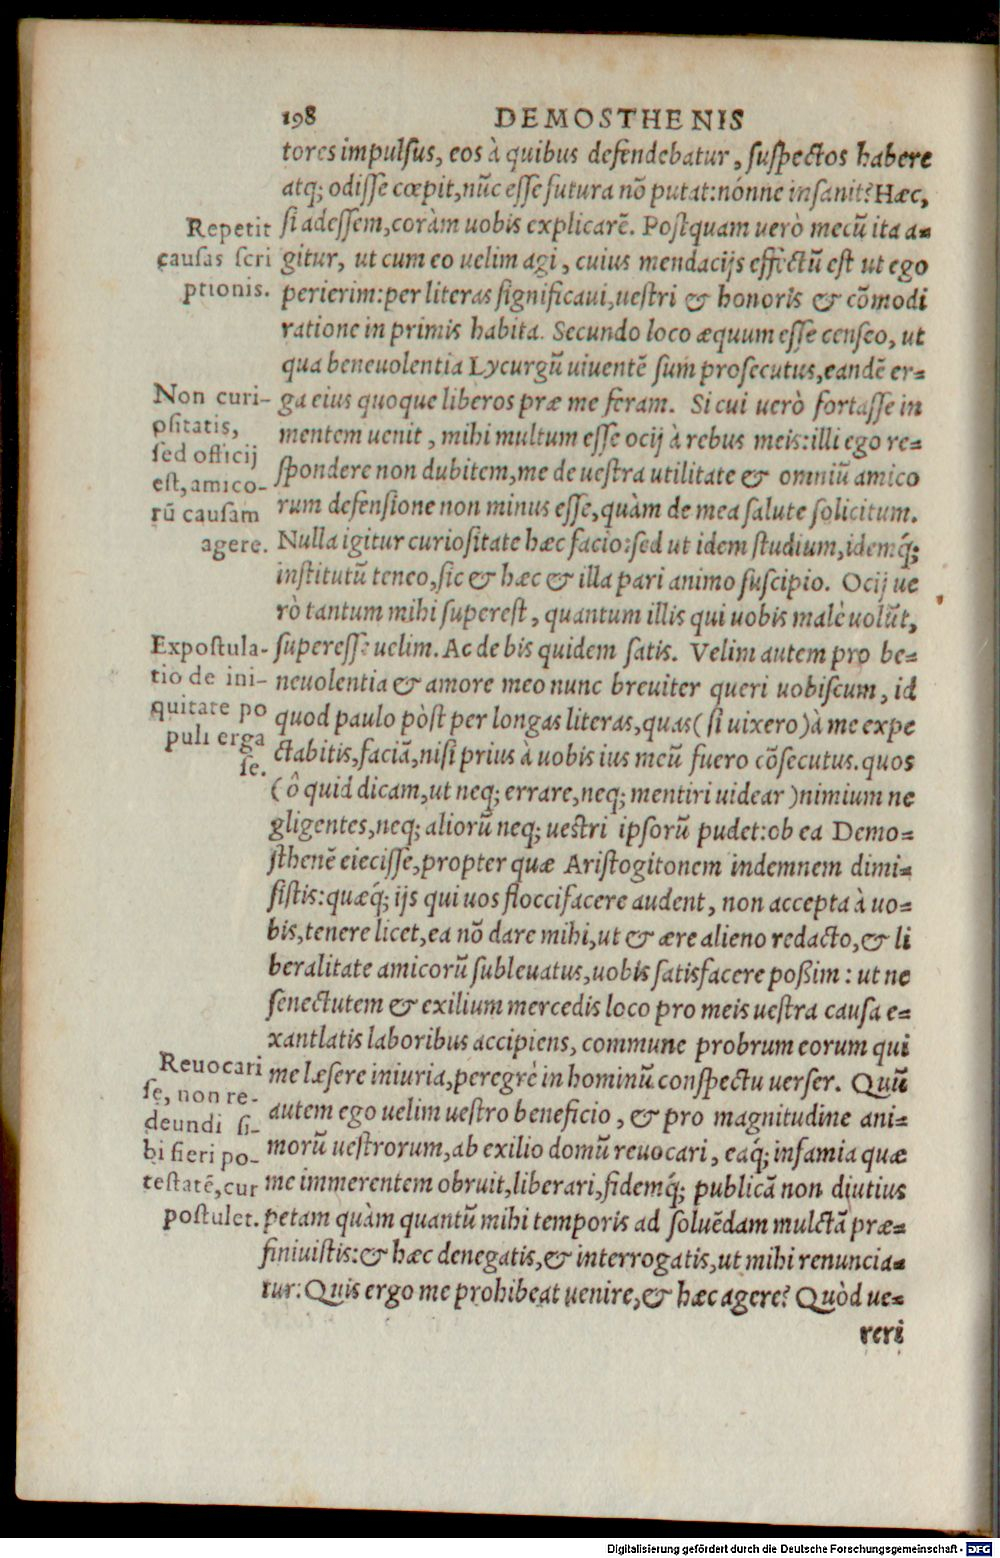 198 DEMOSTHENIS
tores impulsus, eos à quibus defendebatur, suspectos habere
atq; odisse cœpit, nũc esse futura nõ putat: nónne insanit? Hæc,
si adessem, coràm uobis explicarẽ. Postquam uerò mecũ ita a=
gitur, ut cum eo uelim agi, cuius mendacijs effectũ est ut ego
perierim: per literas significaui, uestri & honoris & cõmodi
ratione in primis habita. Secundo loco æquum esse censeo, ut
qua beneuolentia Lycurgũ uiuentẽ sum prosecutus, eandẽ er=
ga eius quoque liberos præ me feram. Si cui uerò fortasse in
mentem uenit, mihi multum esse ocij à rebus meis: illi ego re=
spondere non dubitem, me de uestra utilitate & omniũ amico
rum defensione non minus esse, quàm de mea salute solicitum.
Nulla igitur curiositate hæc facio: sed ut idem studium, idemq́;
institutũ teneo, sic & hæc & illa pari animo suscipio. Ocij ue
rò tantum mihi superest, quantum illis qui uobis malè uolũt,
superesse uelim. Ac de his quidem satis. Velim autem pro be=
neuolentia & amore meo nunc breuiter queri uobiscum, id
quod paulo pòst per longas literas, quas (si uixero) à me expe
ctabitis, faciã, nisi prius à uobis ius meũ fuero cõsecutus. quos
(ô quid dicam, ut neq; errare, neq; mentiri uidear) nimium ne
gligentes, neq; aliorũ neq; uestri ipsorũ pudet: ob ea Demo=
sthenẽ eiecisse, propter quæ Aristogitonem indemnem dimi=
sistis: quæq́; ijs qui uos floccifacere audent, non accepta à uo=
bis, tenere licet, ea nõ dare mihi, ut & ære alieno redacto, & li
beralitate amicorũ subleuatus, uobis satisfacere poßim: ut ne
senectutem & exilium mercedis loco pro meis uestra causa e=
xantlatis laboribus accipiens, commune probrum eorum qui
me læsere iniuria, peregrè in hominũ conspectu uerser. Quũ
autem ego uelim uestro beneficio, & pro magnitudine ani=
morũ uestrorum, ab exilio domũ reuocari, eaq́; infamia quæ
me immerentem obruit, liberari, fidemq́; publicã non diutius
petam quàm quantũ mihi temporis ad soluẽdam mulctã præ=
finiuistis: & hæc denegatis, & interrogatis, ut mihi renuncia=
tur: Quis ergo me prohibeat uenire, & hæc agere? Quòd ue=
reri
Repetit
causas scri
ptionis.
Non curi-
ositatis,
sed officij
est, amico-
rũ causam
agere.
Expostula-
tio de ini-
quitate po
puli erga
se.
Reuocari
se, non re-
deundi si-
bi fieri po-
testatẽ, cur
postulet.
Digitalisierung gefördert durch die Deutsche Forschungsgemeinschaft - DFG